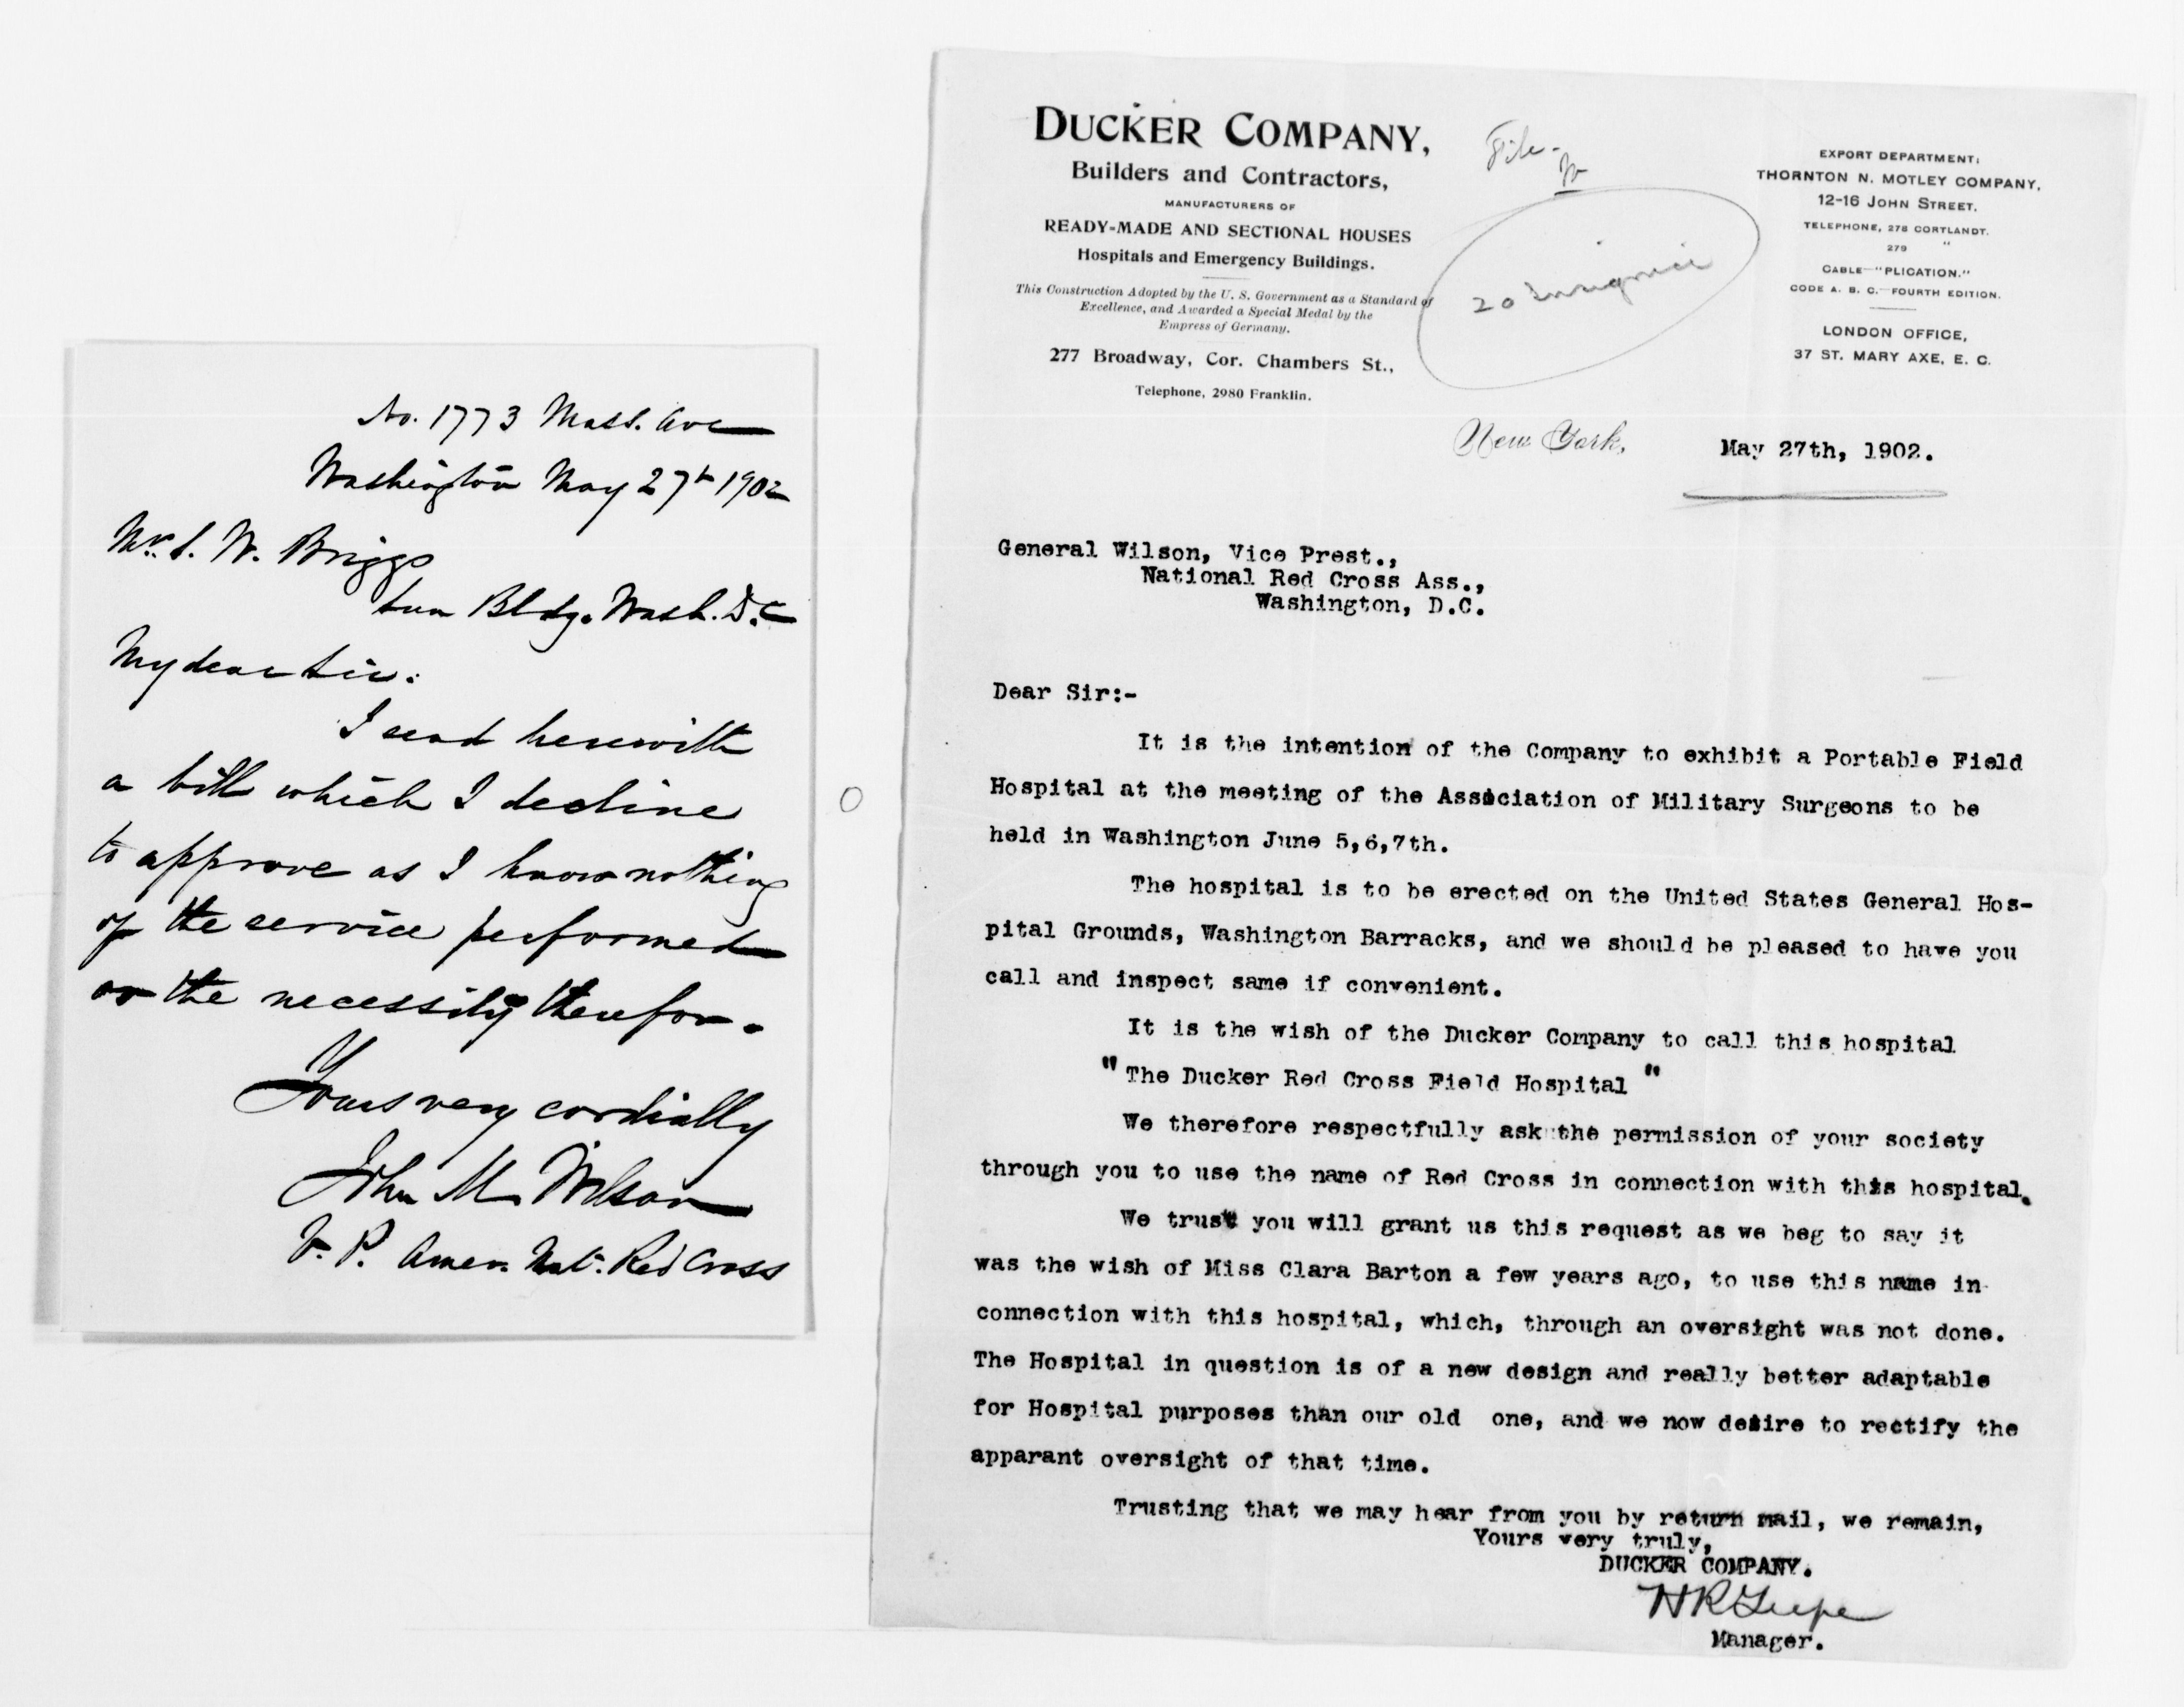 No. 1773 Mass. Ave
Washington May 27th 1902
Mr. S. W. Briggs
Sun Bldg. Wash. D.C
My dear Sir.
I send herewith
a bill which I decline
to approve as I know nothing
of the service performed
or the necessity therefor.
Yours very cordially
John M. Wilson
V. P. Amer. Nat. Red Cross
DUCKER COMPANY,
Builders and Contractors,
MANUFACTURERS OF
READY-MADE AND SECTIONAL HOUSES
Hospitals and Emergency Buildings.
This Construction Adopted by the U. S. Government as a Standard of
Excellence, and Awarded a Special Medal by the
Empress of Germany.
277 Broadway, Cor. Chambers St.,
Telephone, 2980 Franklin.
File-
W
20 Insignia
EXPORT DEPARTMENT:
THORNTON N. MOTLEY COMPANY,
12-16 JOHN STREET.
TELEPHONE, 278 CORTLANDT.
279 "
CABLE—"PLICATION."
CODE A. B. C.—FOURTH EDITION.
LONDON OFFICE,
37 ST. MARY AXE, E. C.
New York, May 27th, 1902.
General Wilson, Vice Prest.,
National Red Cross Ass.,
Washington, D.C.
Dear Sir:-
It is the intention of the Company to exhibit a Portable Field
Hospital at the meeting of the Association of Military Surgeons to be
held in Washington June 5,6,7th.
The hospital is to be erected on the United States General Hos-
pital Grounds, Washington Barracks, and we should be pleased to have you
call and inspect same if convenient.
It is the wish of the Ducker Company to call this hospital
"The Ducker Red Cross Field Hospital"
We therefore respectfully ask the permission of your society
through you to use the name of Red Cross in connection with this hospital.
We trust you will grant us this request as we beg to say it
was the wish of Miss Clara Barton a few years ago, to use this name in
connection with this hospital, which, through an oversight was not done.
The Hospital in question is of a new design and really better adaptable
for Hospital purposes than our old one, and we now desire to rectify the
apparant oversight of that time.
Trusting that we may hear from you by return mail, we remain,
Yours very truly,
DUCKER COMPANY.
Manager.